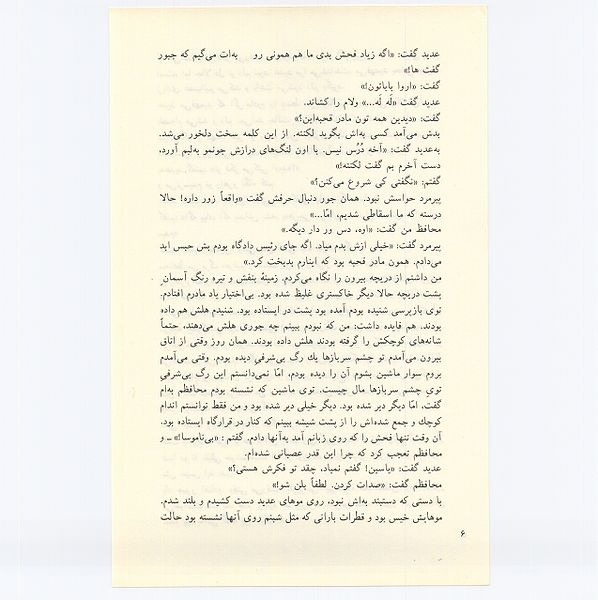 عدید گفت: «اگه زیاد فحش بدی ما هم همونی رو به‌ات می‌گیم که جبور
گفت ها!»
گفت: «اروا باباتون!»
عدید گفت «لَه لَه...» ولام را کشاند.
گفت: «دیدین همه تون مادر قحبه‌این؟»
بدش می‌آمد کسی به‌اش بگوید لکنته. از این کلمه سخت دلخور می‌شد.
به‌عدید گفت: «آخه دُرُس نیس. با اون لنگ‌های درازش جونمو به‌لبم آورد،
دست آخرم بم گفت لکنته!»
گفتم: «نگفتی کی شروع می‌کنن؟»
پیرمرد حواسش نبود. همان جور دنبال حرفش گفت «واقعاً زور داره! حالا
درسته که ما اسقاطی شدیم، امّا...»
محافظ من گفت: «اوه، دس ور دار دیگه.»
پیرمرد گفت: «خیلی ازش بدم میاد. اگه جای رئیس دادگاه بودم بش حبس ابد
می‌دادم. همون مادر قحبه بود که اینارم بدبخت کرد.»
من داشتم از دریچه بیرون را نگاه می‌کردم. زمینهٔ بنفش و تیره رنگ آسمان
پشت دریچه حالا دیگر خاکستری غلیظ شده بود. بی‌اختیار یاد مادرم افتادم.
توی بازپرسی شنیده بودم آمده بود پشت در ایستاده بود. شنیدم هلش هم داده
بودند. هم فایده داشت: من که نبودم ببینم چه جوری هلش می‌دهند، حتماً
شانه‌های کوچکش را گرفته بودند هلش داده بودند. همان روز وقتی از اتاق
بیرون می‌آمدم تو چشم سربازها یك رگ بی‌شرفی دیده بودم. وقتی می‌آمدم
بروم سوار ماشین بشوم آن را دیده بودم، امّا نمی‌دانستم این رگ بی‌شرفی
توی چشم سربازها مال چیست. توی ماشین که نشسته بودم محافظم به‌ام
گفت، امّا دیگر دیر شده بود. دیگر خیلی دیر شده بود و من فقط توانستم اندام
کوچك و جمع شده‌اش را از پشت شیشه ببینم که کنار در قرارگاه ایستاده بود.
آن وقت تنها فحش را که روی زبانم آمد به‌آنها دادم. گفتم: «بی‌ناموسا!» ـ و
محافظم تعجب کرد که چرا این قدر عصبانی شده‌ام.
عدید گفت: «یاسین! گفتم نمیاد، چقد تو فکرش هستی؟»
محافظم گفت: «صدات کردن. لطفاً بلن شو!»
با دستی که دستبند به‌اش نبود، روی موهای عدید دست کشیدم و بلند شدم.
موهایش خیس بود و قطرات بارانی که مثل شبنم روی آنها نشسته بود حالت
۶